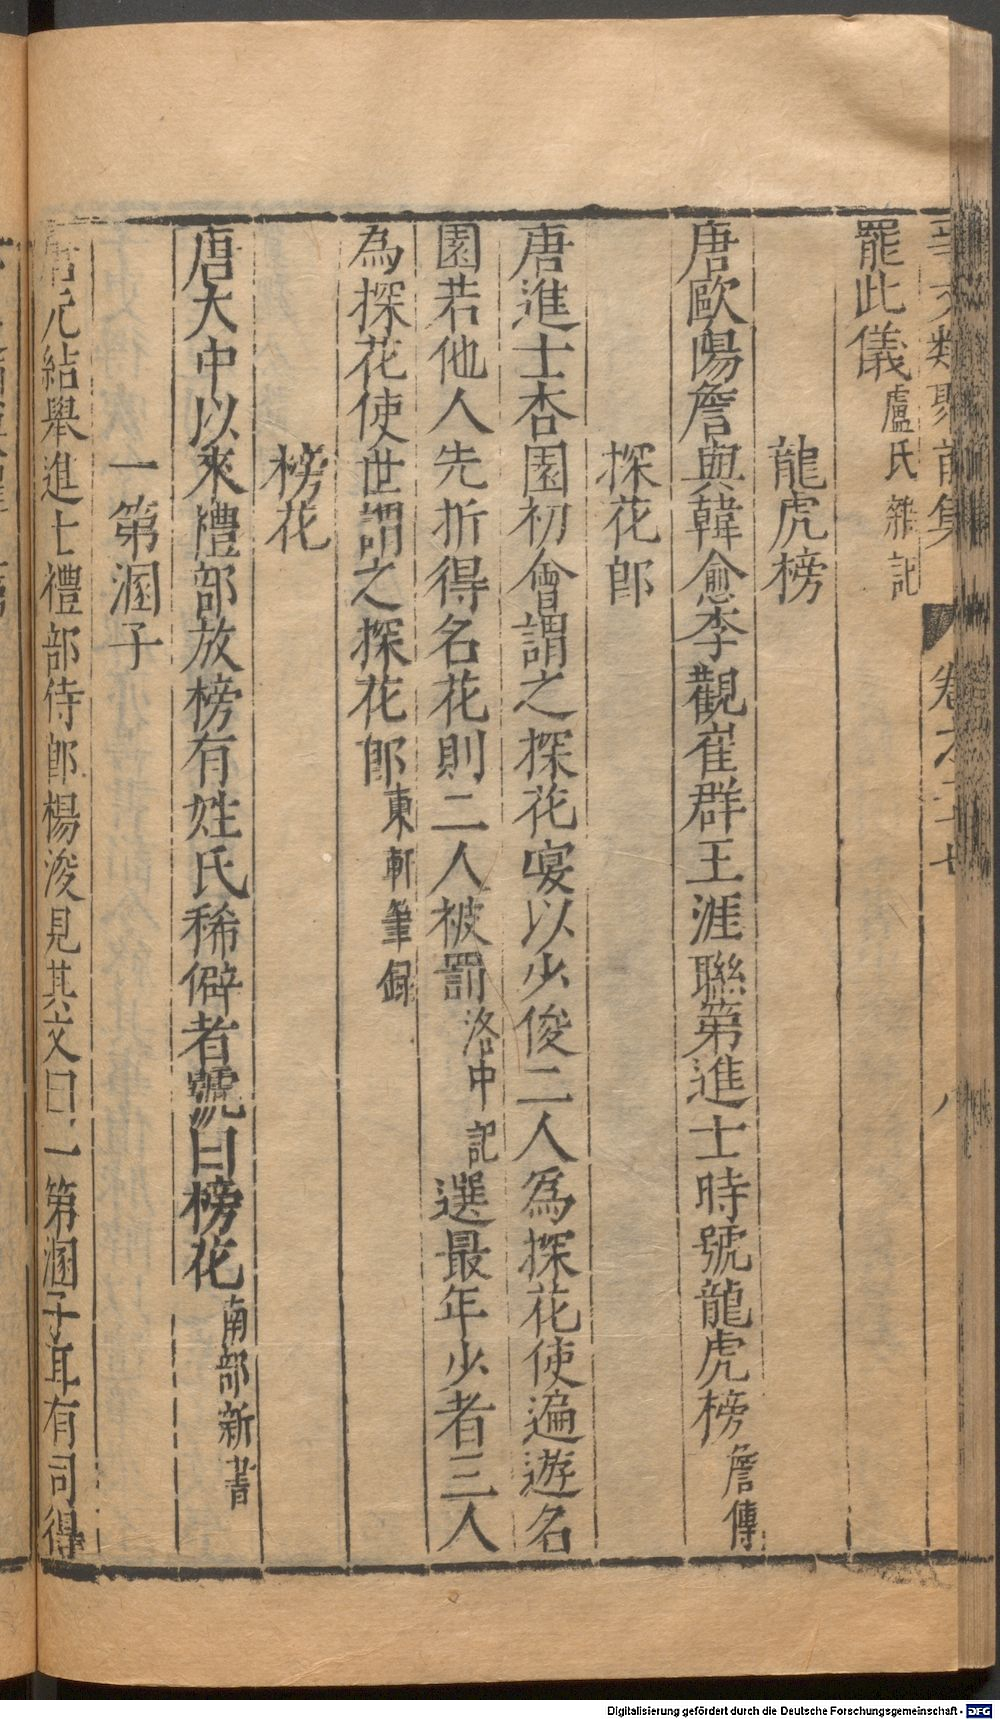 事文類聚前集 卷之二十七 八
罷此儀盧氏雜記
龍虎榜
唐歐陽詹與韓愈李觀崔群王涯聯第進士時號龍虎榜詹傳
探花郎
唐進士杏園初會謂之探花宴以少俊二人為探花使遍遊名
園若他人先折得名花則二人被罰洛中記選最年少者三人
為探花使世謂之探花郎東軒筆録
榜花
唐大中以來禮部放榜有姓氏稀僻者號曰榜花南部新書
一第溷子
唐元結舉進士禮部侍郎楊浚見其文曰一第溷子耳有司得
Digitalisierung gefördert durch die Deutsche Forschungsgemeinschaft - DFG